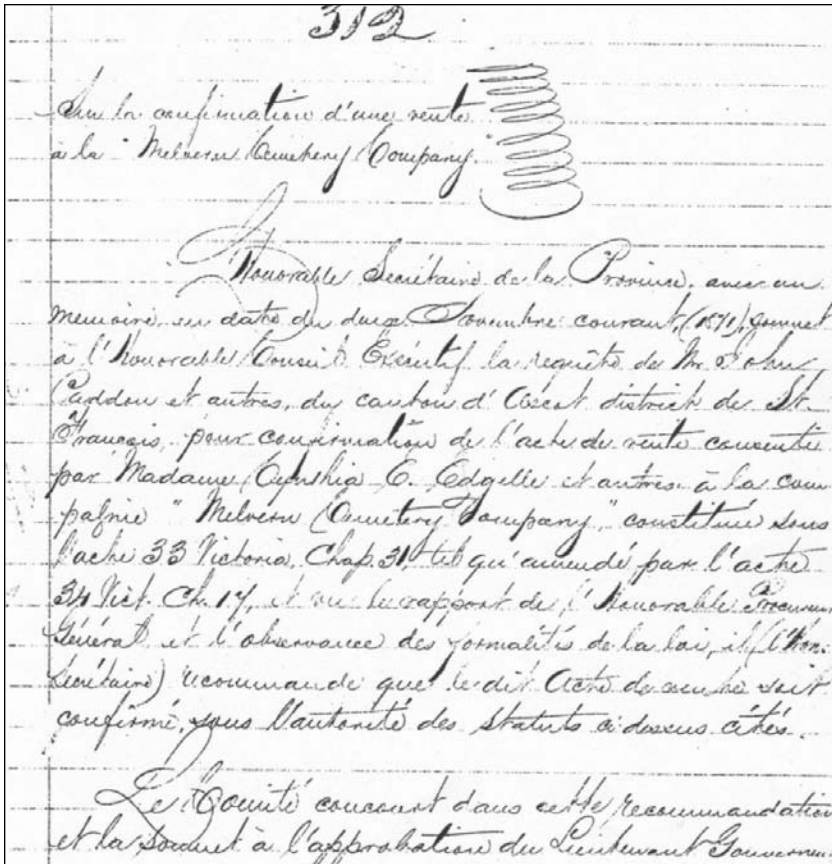 312
Sur la confirmation d'une vente
à la "Melvern Cemetery Company.
L'Honorable Secrétaire de la Province, avec un
memoire en date du deux Novembre courant, (1871), soumet
à l'Honorable Conseil Exécutif la requête de Mr John
Paddon et autres, du canton d'Ascot district de St.
François, pour confirmation de l'acte de vente consentie
par Madame Cynthia E. Edgelle et autres à la com
pagnie "Melvern Cemetery Company," constituée sous
l'acte 33 Victoria, Chap. 31, tel qu'amendé par l'acte
34 Vict. Ch. 17, et vu le rapport de l'Honorable Procureur
Général et l'observance des formalités de la loi, il (l'Hon.
Secrétaire) recommande que le dit Acte de vente soit
confirmé, sous l'autorité des Statuts ci-dessus cités.
Le Comité concourt dans cette recommandation
et la soumet à l'approbation du Lieutenant Gouverneur